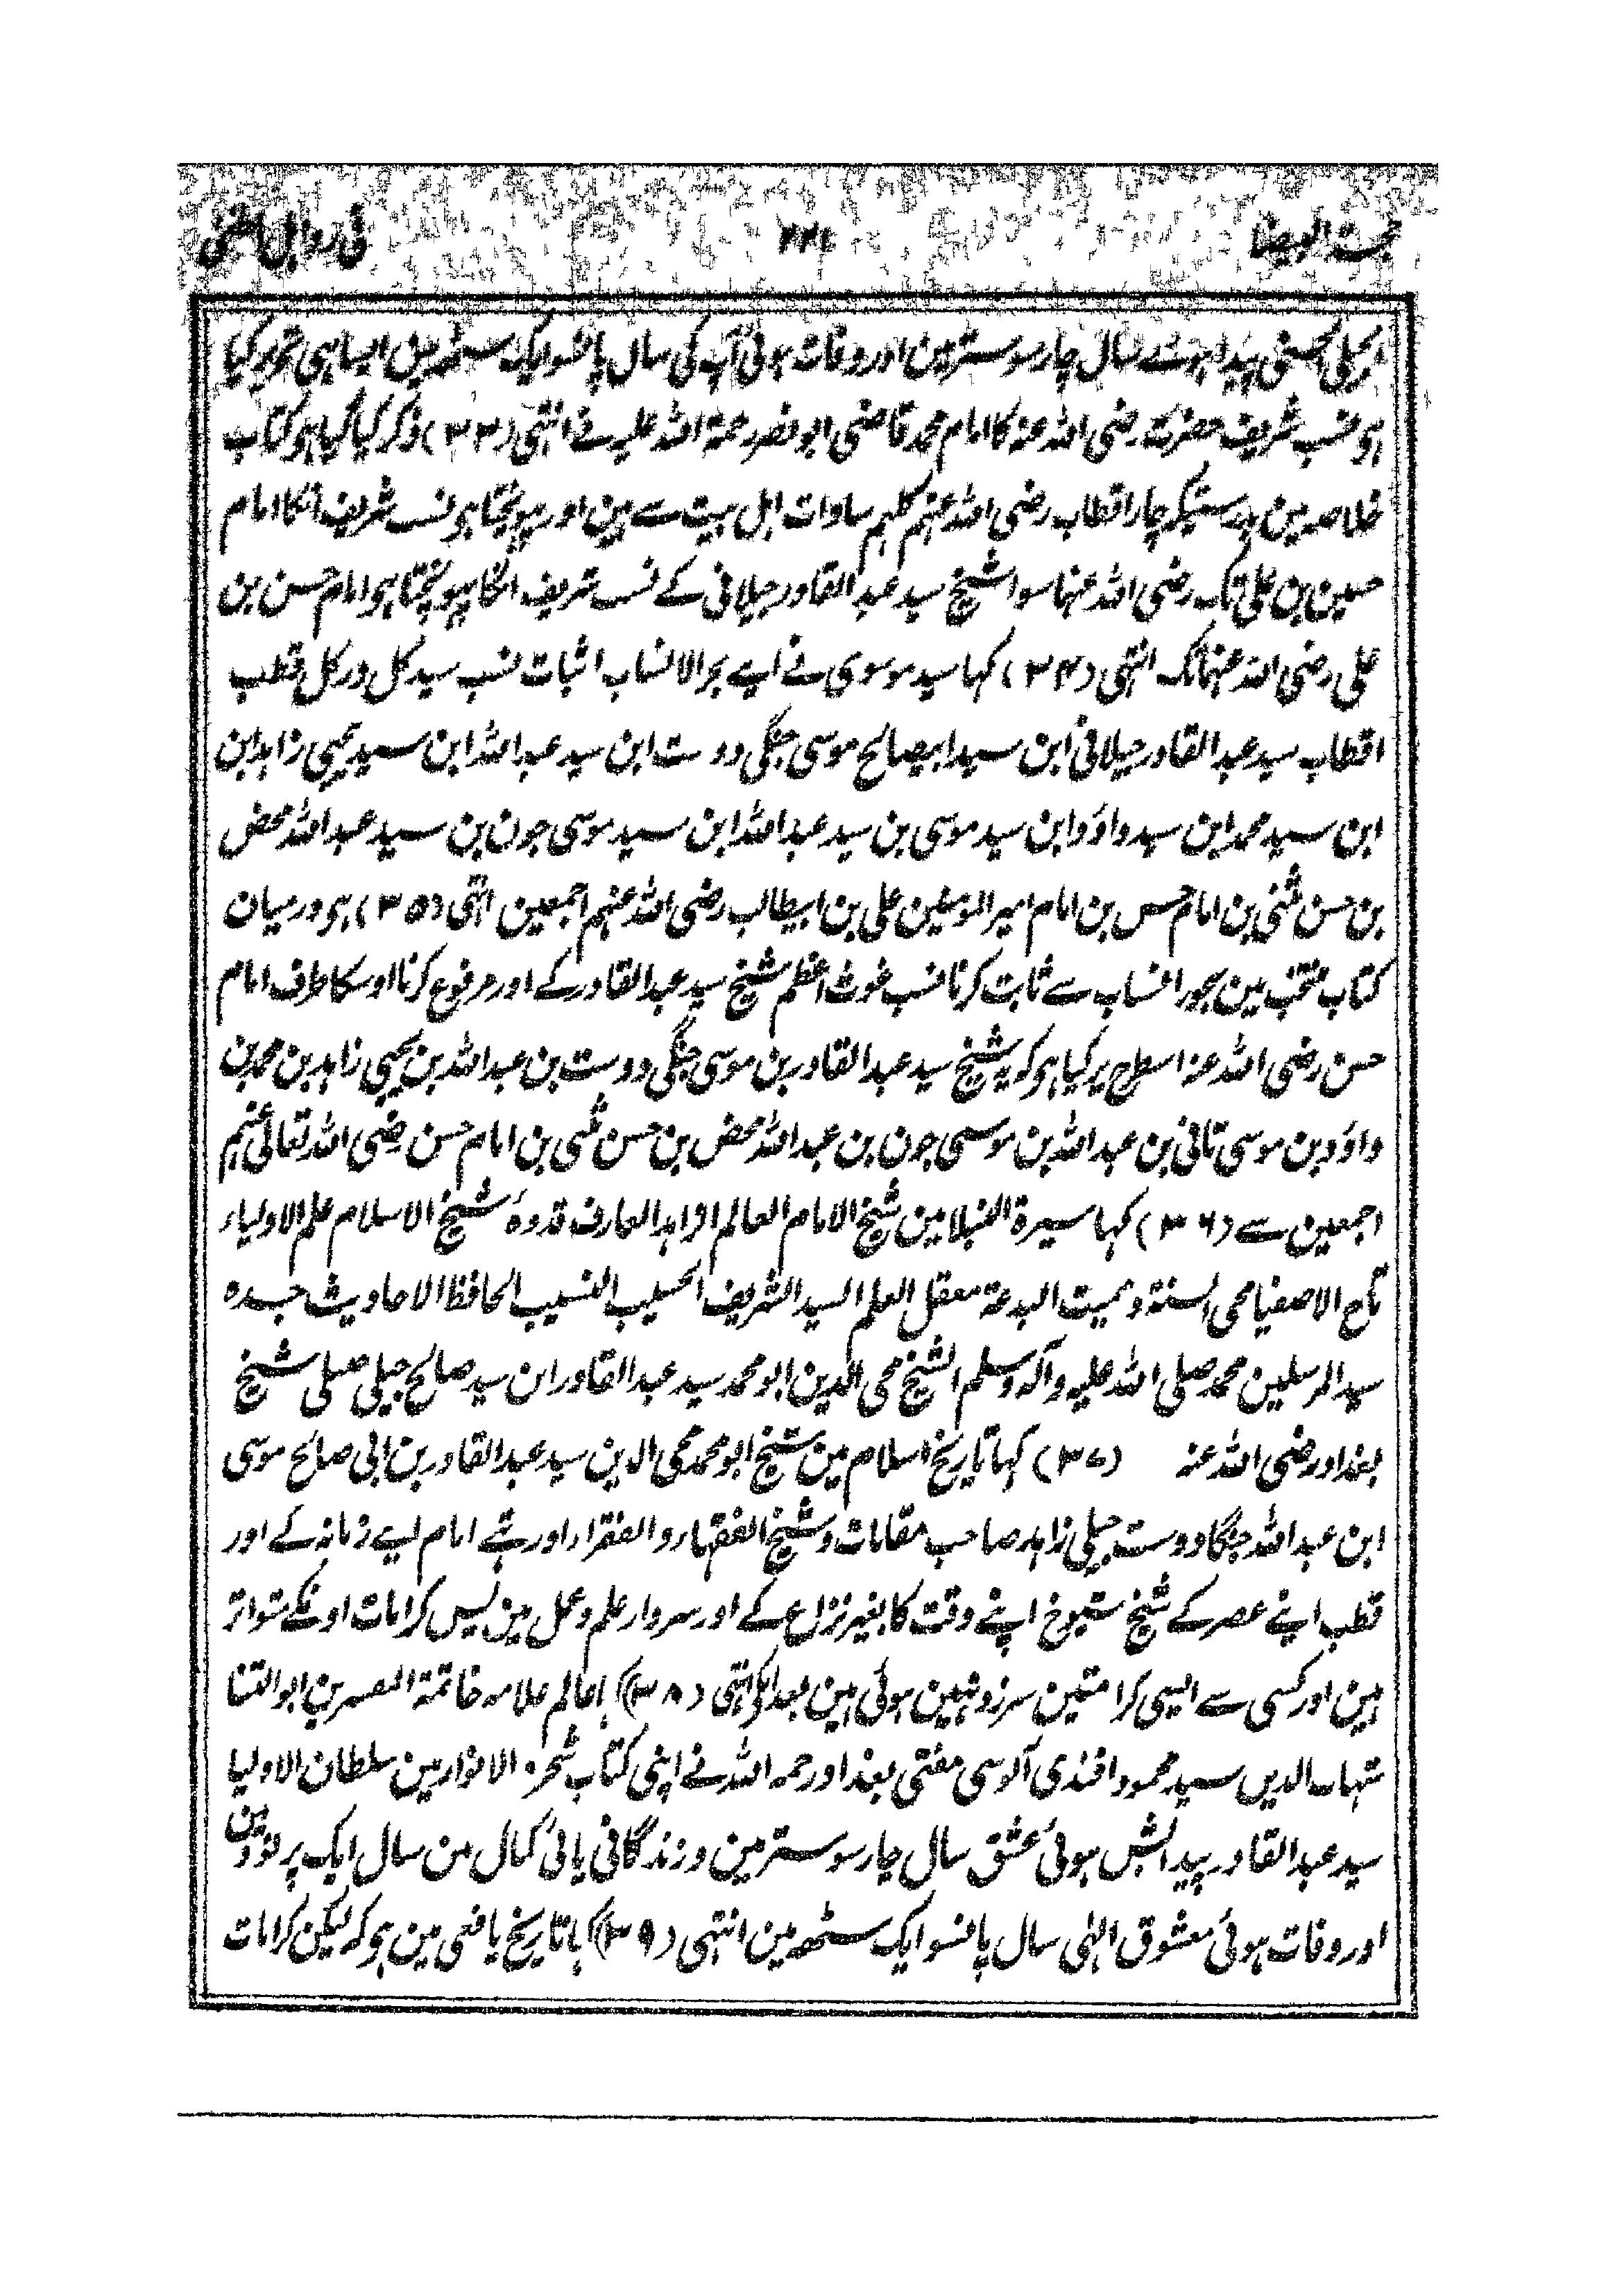 حجت البیضا
الجیلی الحسنی پیدا ہوئے سال چار سو ستر مین اور وفات ہوئی آپ کی سال پانسو ایک سٹھ مین ایسا ہی تحریر کیا
ہو نسب شریف حضرت رضی اللہ عنہ کا امام محمد قاضی ابو نصر رحمۃ اللہ علیہ نے انتہی (۳۳) ذکر کیا گیا ہو کتاب
خلاصہ مین چار اقطاب رضی اللہ عنہم کلہم سادات اہل بیت سے ہین اور پہونچتا ہو نسب شریف انکا امام
حسین بن علی تک رضی اللہ عنہا سوا شیخ سید عبد القادر جیلانی کے نسب شریف انکا پہونچتا ہو امام حسن بن
علی رضی اللہ عنہما تک انتہی (۳۴) کہا سید موسوی نے اپنے بحر الانساب اثبات نسب سید کل در کل قطب
اقطاب سید عبد القادر جیلانی ابن سید ابیصالح موسی جنگی دوست ابن سید عبد اللہ ابن سید یحیی زاہد ابن
ابن سید محمد ابن سید داؤد ابن سید موسی بن سید عبد اللہ ابن سید موسی جون بن سید عبد اللہ محض
بن حسن مثنی بن امام حسن بن امام امیر المومنین علی بن ابیطالب رضی اللہ عنہم اجمعین انتہی (۳۵) ہو درمیان
کتاب منتخب مین بحور انساب سے ثابت کرنا نسب غوث اعظم شیخ سید عبد القادر کے اور مرفوع کرنا اوسکا طرف امام
حسن رضی اللہ عنہ اسطرح پر کیا ہو کہ یہ شیخ سید عبد القادر بن موسی جنگی دوست بن عبد اللہ بن یحیی زاہد بن محمد بن
داؤد بن موسی ثانی بن عبد اللہ بن موسی جون بن عبد اللہ محض بن حسن مثنی بن امام حسن رضی اللہ تعالی عنہم
اجمعین سے (۳۶) کہا سیرۃ النبلا مین شیخ الامام العالم الزاہد العارف قدوۃ شیخ الاسلام علم الاولیاء
تاج الاصفیا محی السنۃ و ممیت البدعۃ معقل العلم السید الشریف الحسیب النسیب الحافظ الاحادیث جدہ
سید المرسلین محمد صلی اللہ علیہ وآلہ وسلم الشیخ محی الدین ابو محمد سید عبد القادر ابن سید صالح جیلی حنبلی شیخ
بغداد رضی اللہ عنہ (۳۷) کہا تاریخ اسلام مین شیخ ابو محمد محی الدین سید عبد القادر بن ابی صالح موسی
ابن عبد اللہ جنگا دوست جیلی زاہد صاحب مقامات و شیخ الفقہاء والفقراء اور تھے امام اپنے زمانہ کے اور
قطب اپنے عصر کے شیخ شیوخ اپنے وقت کا بغیر نزاع کے اور سردار علم و عمل مین پس کرامات اونکے متواتر
ہین اور کسی سے ایسی کرامتین سرزد نہین ہوئی ہین بعد انکے انتہی (۳۸) کہا عالم علامہ خاتمۃ المفسرین ابو الثنا
شہاب الدین سید محمود افندی آلوسی مفتی بغداد رحمہ اللہ نے اپنی کتاب شجرۃ الانوار مین سلطان الاولیا
سید عبد القادر پیدائش ہوئی عشق سال چار سو ستر مین و زندگانی پائی کمال من سال ایک پر نود مین
اور وفات ہوئی معشوق الہٰی سال پانسو ایک سٹھ مین انتہی (۳۹) کہا تاریخ یافعی مین ہو کہ لیکن کرامات